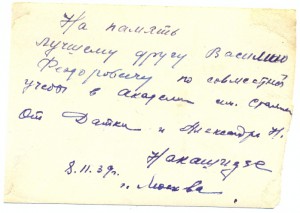 На память
лучшему другу Василию
Федоровичу по совместной
учебы в Академии им. Сталина
От Датки и Александра Н.
Накашидзе
8.11.39г.
г. Москва.